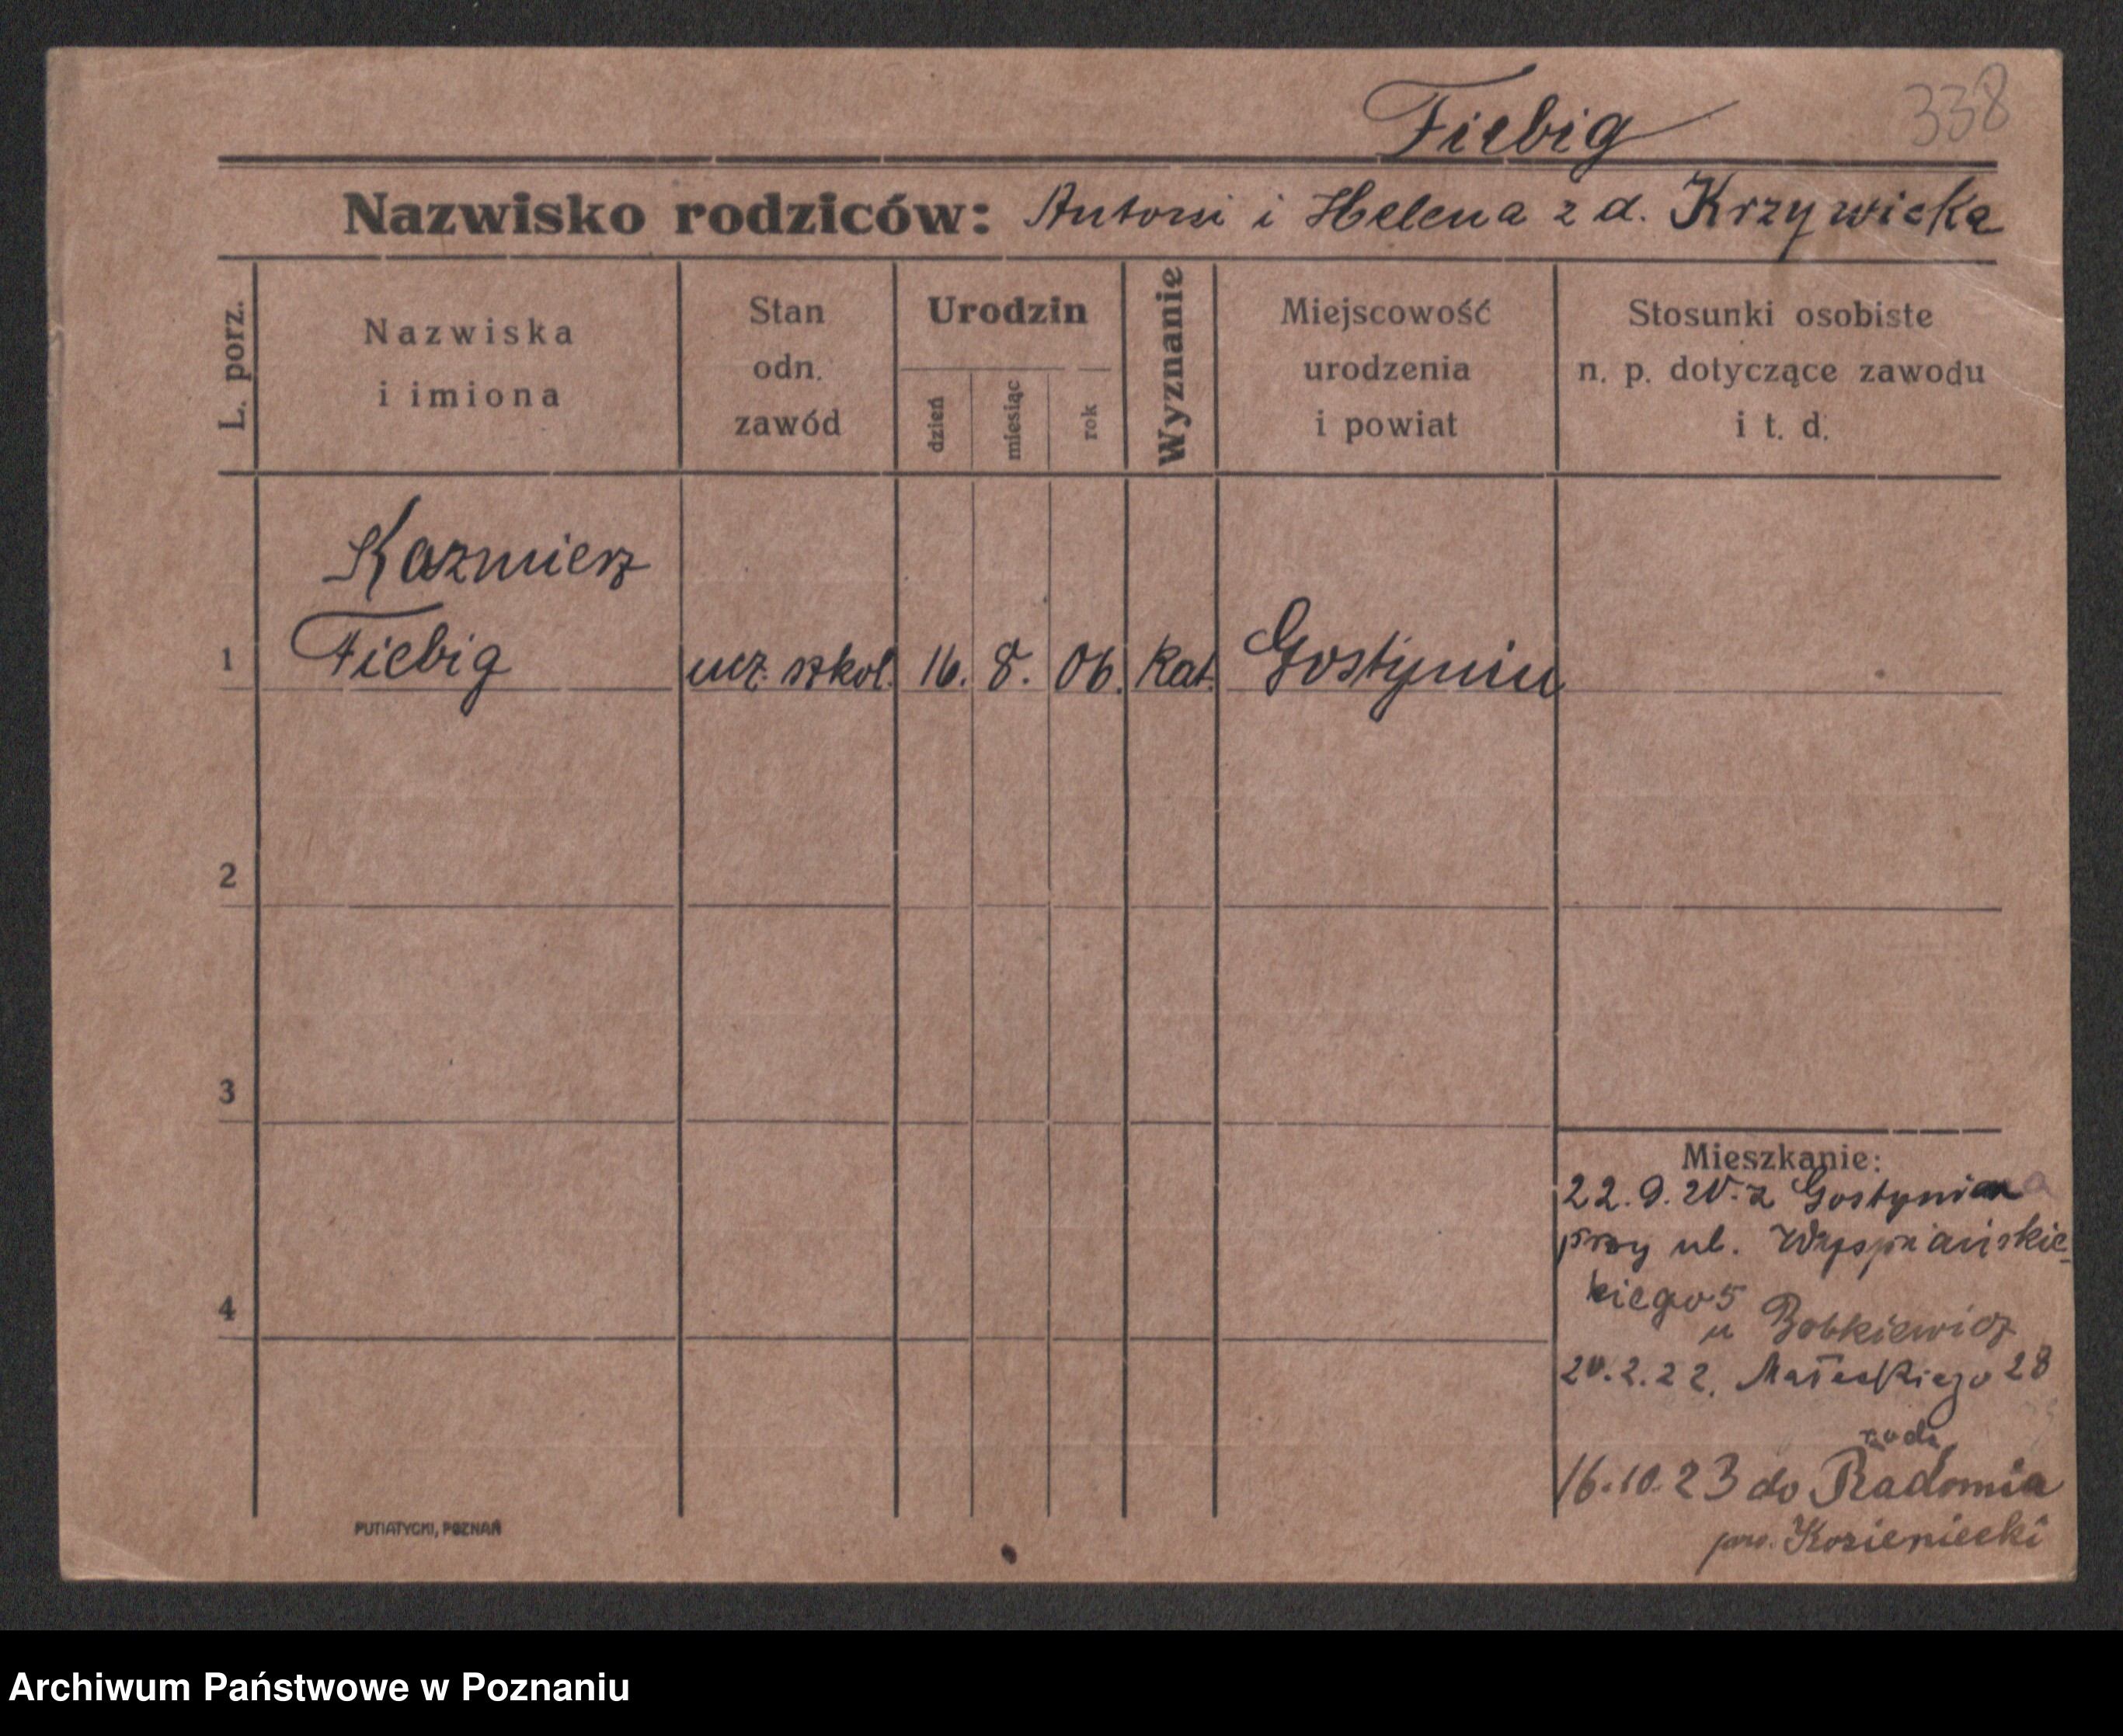 Fiebig 338
Nazwisko rodziców: Antoni i Helena z d. Krzywicka
L. porz.
Nazwiska
i imiona
Stan
odn.
zawód
Urodzin
dzień
miesiąc
rok
Wyznanie
Miejscowość
urodzenia
i powiat
Stosunki osobiste
n. p. dotyczące zawodu
i t. d.
Kazmierz
1 Fiebig ucz. szkol. 16. 8. 06. kat. Gostyniu
2
3
Mieszkanie:
22. 9. 20. z Gostynia
przy ul. Wyspiańskie
4 kiego 5
u Bobkiewicz
20. 2. 22. Małeckiego 28
16. 10. 23 do Radomia
pow. Kozieniecki
PUTIATYCKI, POZNAŃ
Archiwum Państwowe w Poznaniu